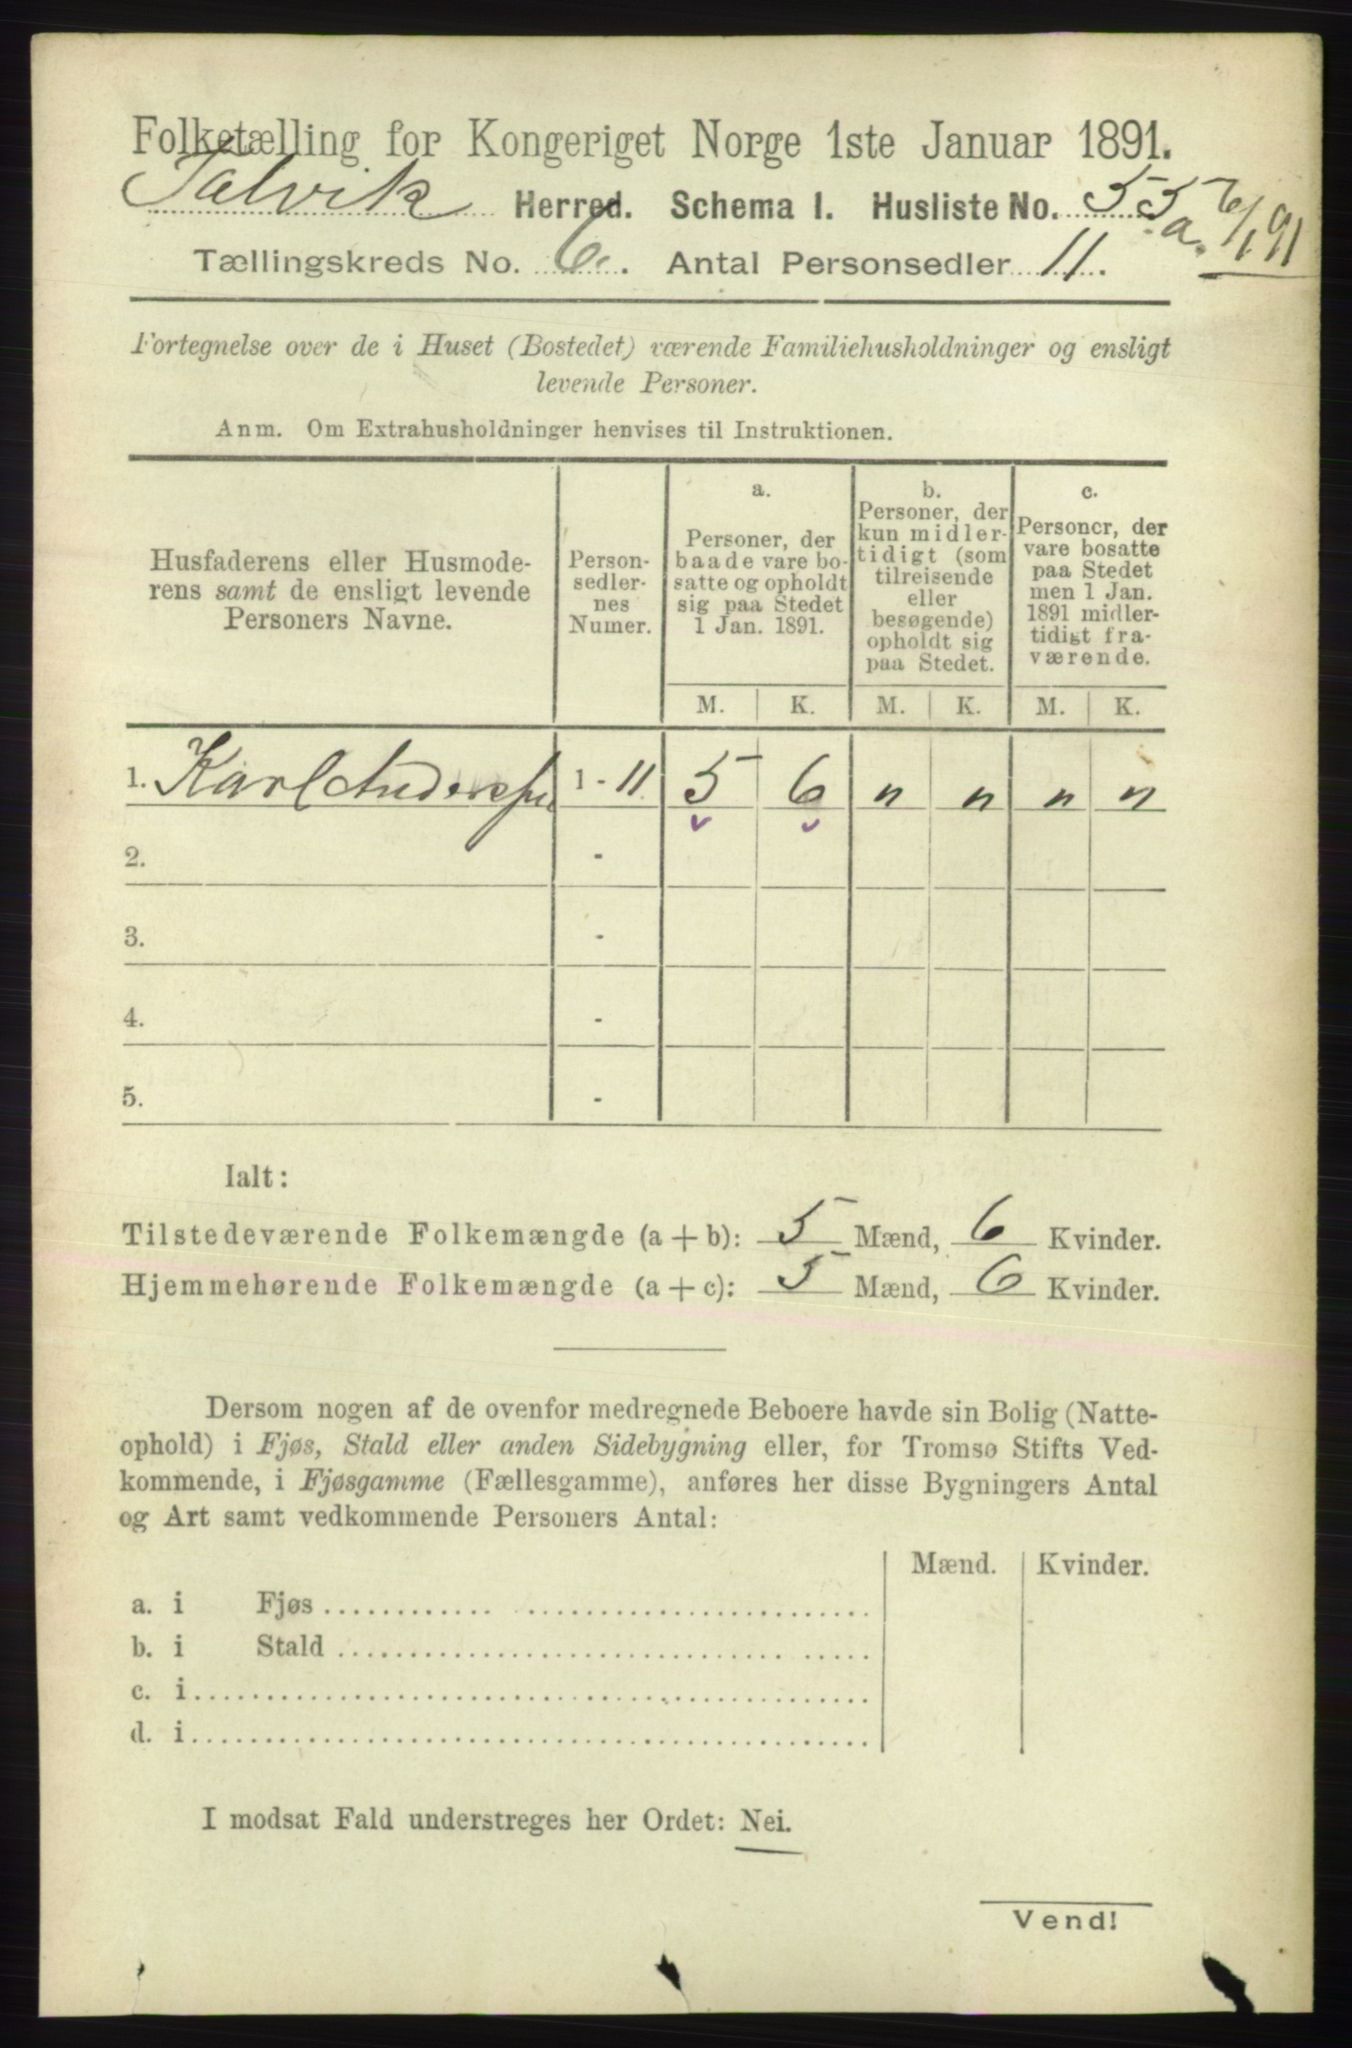 Folketælling for Kongeriget Norge 1ste Januar 1891.
Talvik Herred. Schema I. Husliste No. 55 a. 6/1 91
Tællingskreds No. 6. Antal Personsedler 11.
Fortegnelse over de i Huset (Bostedet) værende Familiehusholdninger og ensligt
levende Personer.
Anm. Om Extrahusholdninger henvises til Instruktionen.
Husfaderens eller Husmode-
rens samt de ensligt levende
Personers Navne.
Person-
sedler-
nes
Numer.
a.
Personer, der
baade vare bo-
satte og opholdt
sig paa Stedet
1 Jan. 1891.
b.
Personer, der
kun midler-
tidigt (som
tilreisende
eller
besøgende)
opholdt sig
paa Stedet.
c.
Personer, der
vare bosatte
paa Stedet
men 1 Jan.
1891 midler-
tidigt fra-
værende.
M. K. M. K. M. K.
1. Karl Anderssen 1 - 11 5 6 " " " "
2. -
3. -
4. -
5. -
Ialt:
Tilstedeværende Folkemængde (a + b): 5 Mænd, 6 Kvinder.
Hjemmehørende Folkemængde (a + c): 5 Mænd, 6 Kvinder.
Dersom nogen af de ovenfor medregnede Beboere havde sin Bolig (Natte-
ophold) i Fjøs, Stald eller anden Sidebygning eller, for Tromsø Stifts Ved-
kommende, i Fjøsgamme (Fællesgamme), anføres her disse Bygningers Antal
og Art samt vedkommende Personers Antal:
Mænd. Kvinder.
a. i Fjøs
b. i Stald
c. i
d. i
I modsat Fald understreges her Ordet: Nei.
Vend!